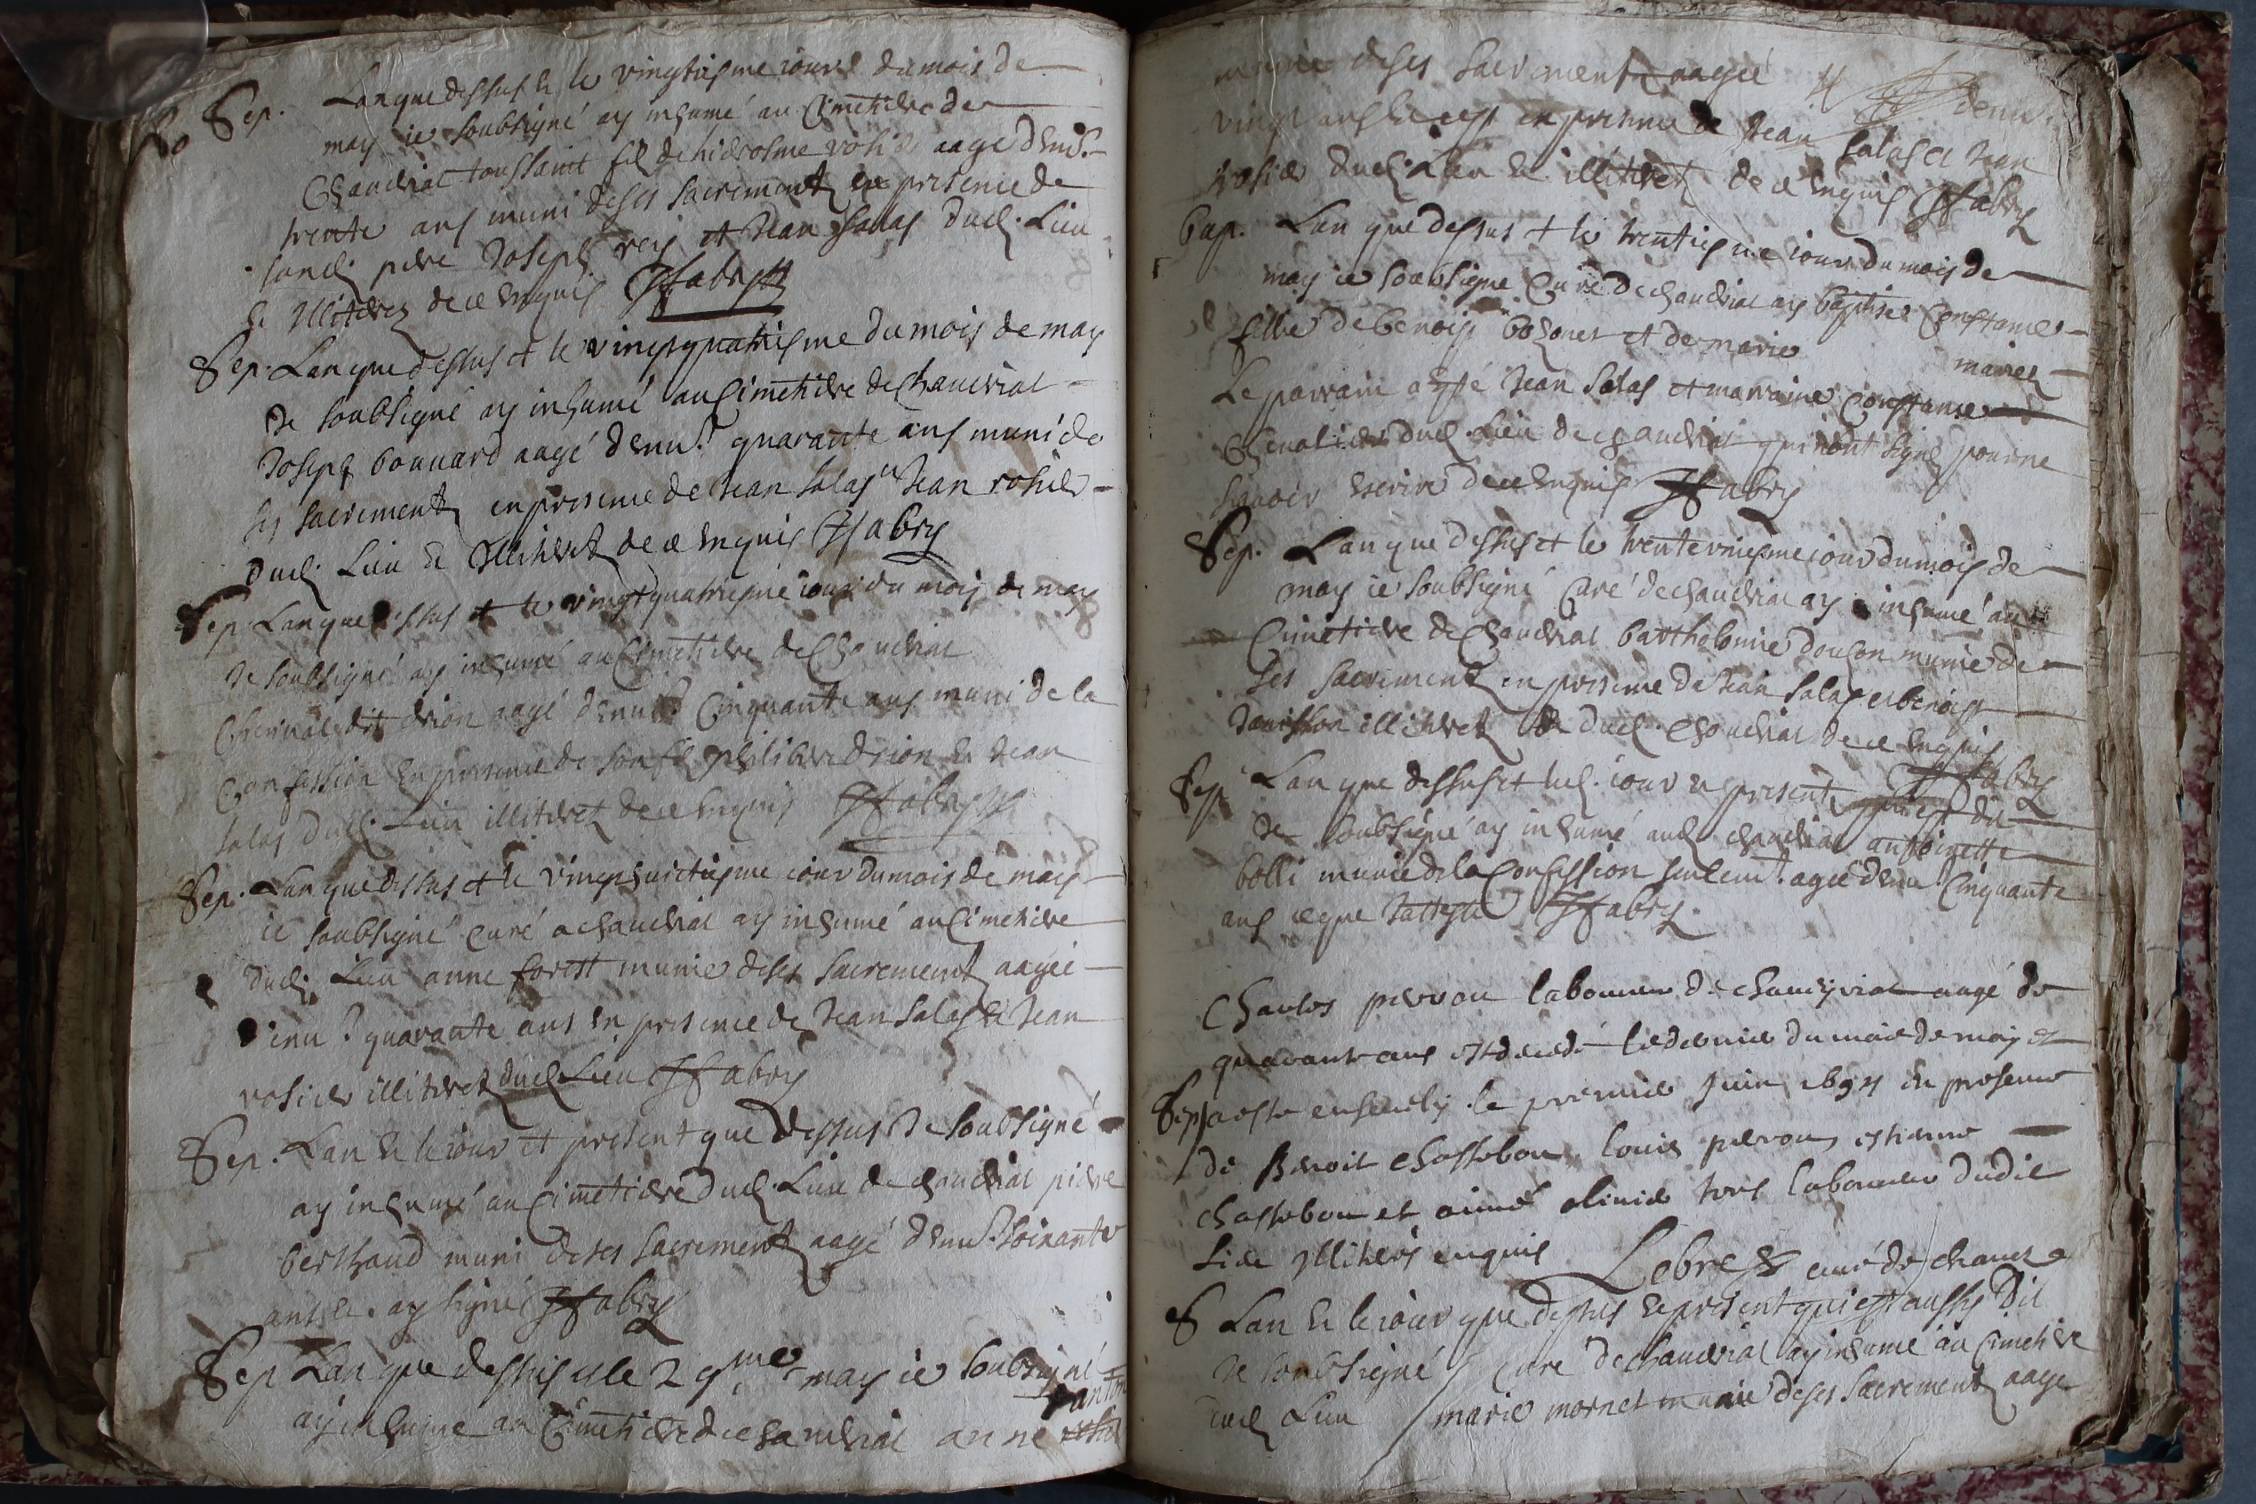 Sep. Lan que dessus & le vingtiesme jour du mois de
may ie soubsigné ay inhumé au Cimetiere de
Chauriat toussaint fil de hierosme rosier aagé denv.
trente ans muni de ses sacrement en presence de
sond. pere Joseph rey et Jean Salas dud. Lieu
& illiterez de ce enquis JFabry
Sep. Lan que dessus et le vingt quatriesme du mois de may
Je soubsigné ay inhumé au Cimetiere de Chauriat
Joseph bonnard aagé denv. quarante ans muni de
ses sacrement en presence de Jean Salas et Jean rosier
dud. Lieu & Illiterez de ce enquis JFabry
Sep. Lan que dessus et le vingt quatriesme jour du mois de may
Je soubsigné ay inhumé au Cimetiere de Chauriat
dit drion aagé denv. Cinquante ans muni de la
Confession en presence de son fil philibert drion & Jean
Salas dud. Lieu illiterez de ce enquis JFabry
Sep. Lan que dessus et le vingt huictiesme jour du mois de may
ie soubsigné curé a chauriat ay inhumé au Cimetiere
dud. Lieu anne forest munie de ses sacrement aagee
denv. quarante ans en presence de Jean Salas & Jean
rosier illiterez dud. Lieu JFabry
Sep. Lan & le iour et present que dessus Je soubsigné
ay inhumé au Cimetiere dud. Lieu de chauriat pierre
berthaud muni de ses sacrement aagé denv. soixante
ans &. ay signé JFabry
Sep Lan que dessus & le 29me may ie soubsigné
ay inhumé au Cimetiere de chauriat anne
munie de ses sacrement aagée denv.
vingt ans & ce en presence de Jean Salas et Jean
rosier dud. Lieu & illiterez de ce enquis JFabry
bap. Lan que dessus et le trentiesme iour du mois de
may ie soubsigné Curé de chauriat ay baptisé Constance
fille de benoist bozonet et de marie
Le parrain a esté Jean Salas et marraine Constance
dud. Lieu de chauriat qui nont signé pour ne
scavoir escrire de ce enquis JFabry
Sep. Lan que dessus et le trente uniesme iour du mois de
may ie soubsigné Curé de chauriat ay inhumé au
Cimetiere de chauriat barthelomie doucon munie de
ses sacrement en presence de Jean Salas et benoist
illiterez dud. Chauriat de ce enquis
JFabry
Sep. Lan que dessus et led. iour & present
Je soubsigné ay inhumé aud. chauriat anthoinette
bolli munie de la Confession seulemt. agée denv. Cinquante
ans ce que Jatteste JFabry
Charles perrou laboureur de chaurriat aagé de
quarante ans est decedé le dernier du mois de may et
Sep. a este ensevely le premier Juin 1694 en presence
de Benoit Chassebou, Louis perrou, estienne
chassebou et aimé olivie tous laboureur dudit
lieu illiterés enquis Lebre curé de
S Lan & le iour que dessus & present qui est aussy dit
Je soubsigné curé de chauriat ay inhumé au Cimetiere
dud. Lieu marie mornet munie de ses sacrement aagee